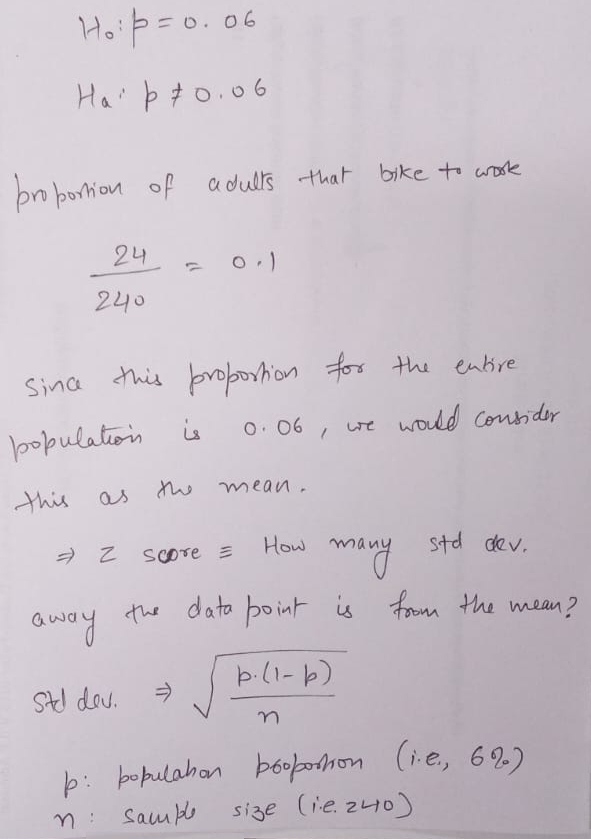 H₀: p = 0.06
Ha: p ≠ 0.06
proportion of adults that bike to work
24
240
= 0.1
Since this proportion for the entire
population is 0.06, we would consider
this as the mean.
⇒ Z score ≡ How many std dev.
away the data point is from the mean?
Std dev. ⇒ √ p.(1-p)
n
p: population proportion (i.e., 6%)
n: sample size (i.e. 240)